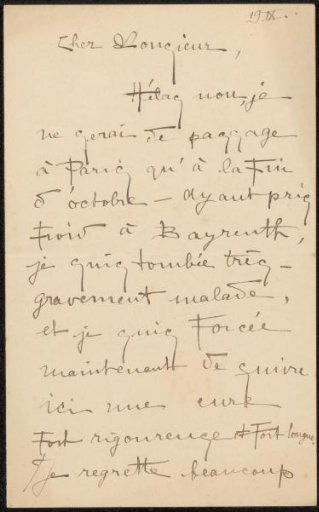 19 IX.
Cher Monsieur,
Hélas non, je
ne serai de passage
à Paris qu'à la Fin
d'octobre – Ayant pris
Froid à Bayreuth,
je suis tombée très –
gravement malade,
et je suis Forcée
maintenant de suivre
ici une cure
Fort rigoureuse et Fort longue.
Je regrette beaucoup